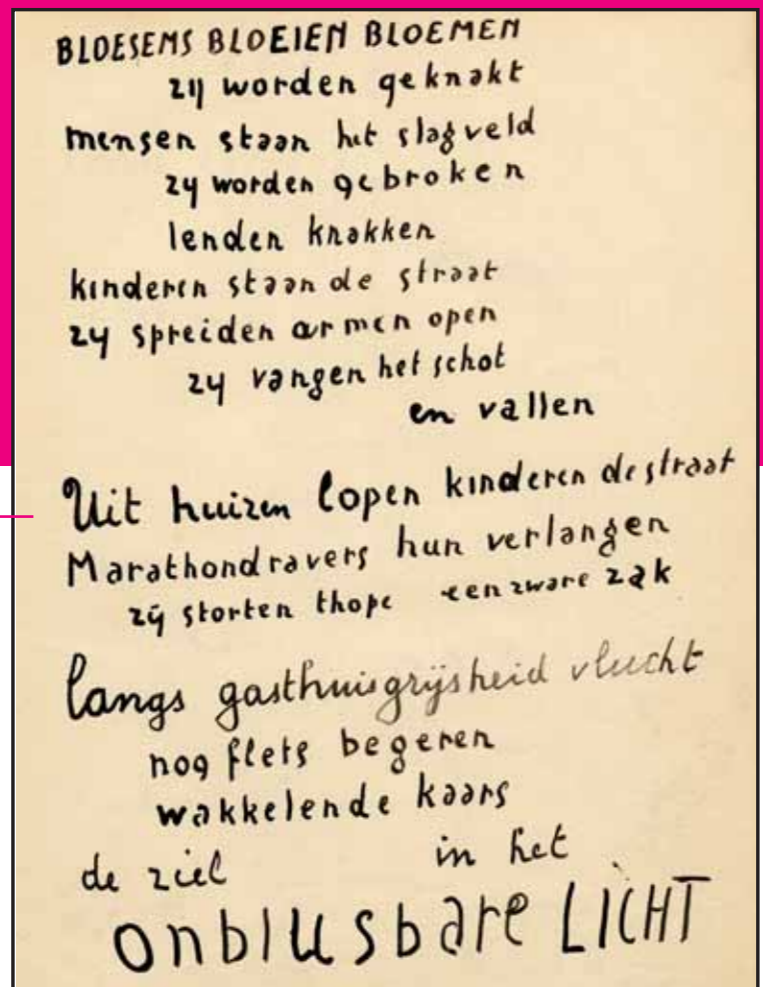 BLOESEMS BLOEIEN BLOEMEN
zij worden geknakt
mensen staan het slagveld
zy worden gebroken
lenden knakken
kinderen staan de straat
zy spreiden armen open
zy vangen het schot
en vallen
Uit huizen lopen kinderen de straat
Marathondravers hun verlangen
zÿ storten thope een zware zak
langs gasthuisgrijsheid vlucht
nog flets begeren
wakkelende kaars
de ziel in het
onblusbare LICHT